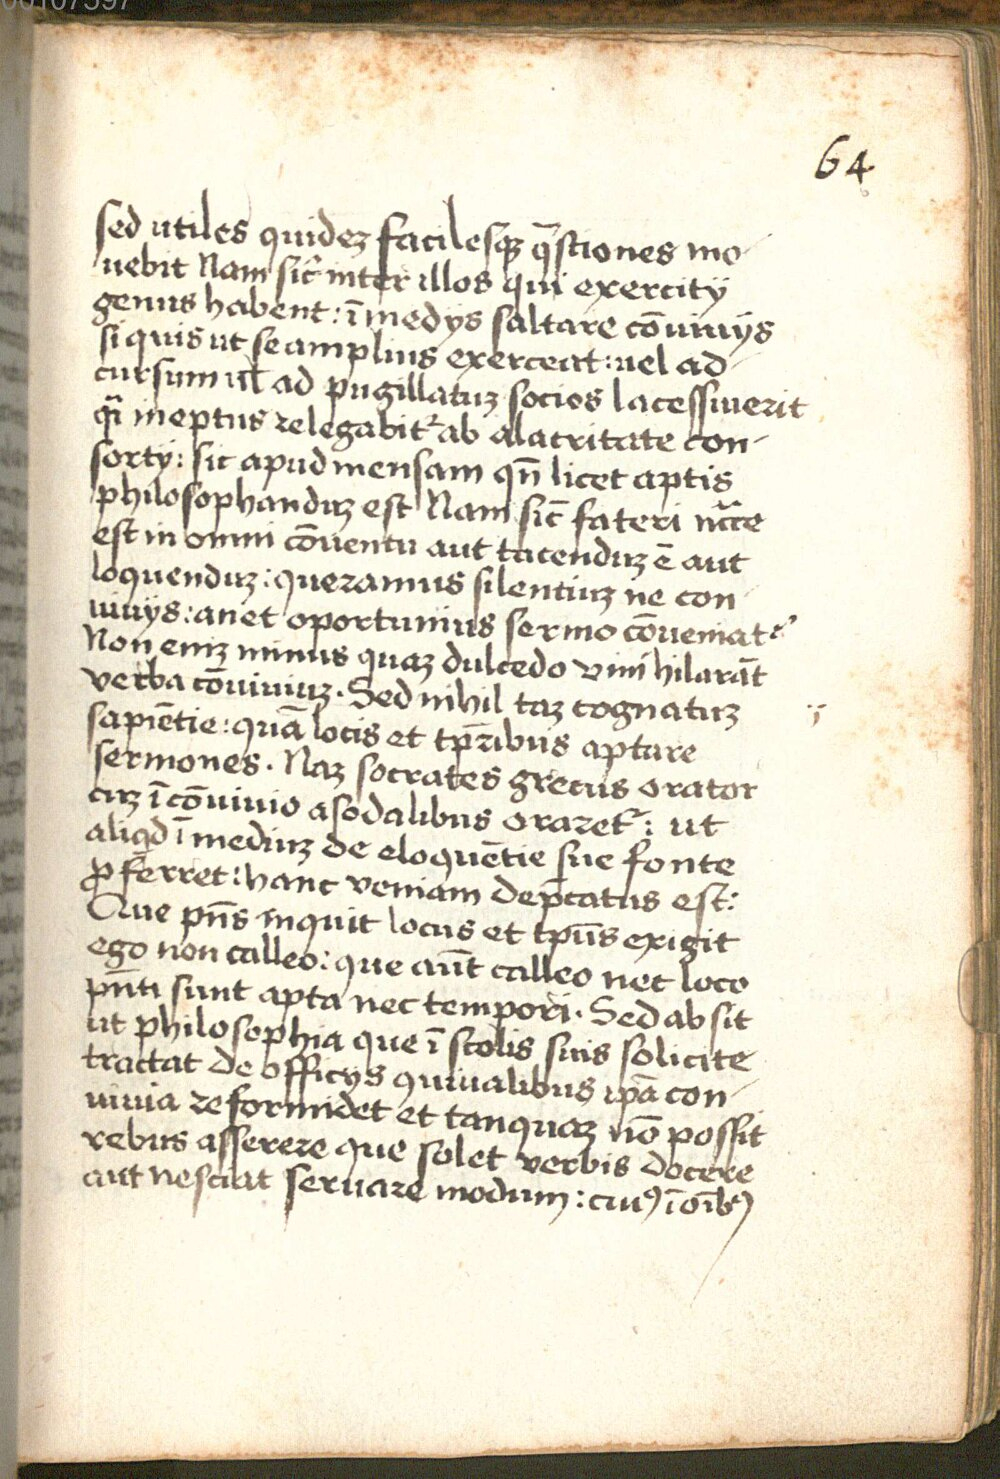 00107597
64
sed utiles quidez facilesqz q̄stiones mo-
uebit Nam sic̄ inter illos qui exercitij
genus habent: ī medijs saltare cōuiuijs
si quis ut se amplius exerceat: uel ad
cursum ul̄ ad pugillatuz socios lacessiuerit
qͣi ineptus relegabit᷑ ab alacritate con-
sortij: sic apud mensam qn̄ licet aptis
philosophanduz est Nam sic̄ fateri nc̄ce
est in omni cōuentu aut tacenduz ē aut
loquenduz: queramus silentiuz ne con
uiuijs: an et oportunus sermo cōueniat᷑
Non eniz minus quaz dulcedo vini hilarāt
verba cōuiuiuz. Sed nihil taz cognatuz
sapiētie: quā locis et tp̄ribus aptare
sermones. Naz socrates grecus orator
cuz ī cōuiuio a sodalibus oraret᷑: ut
aliqd ī mediuz de eloquētie sue fonte
ꝓferret: hanc veniam dep̄catus est:
Que pn̄s inquit locus et tpūs exigit
ego non calleo: que aut̄ calleo nec loco
pn̄ti sunt apta nec tempori. Sed absit
ut philosophia que ī scolis suis solicite
tractat de officijs quiualibus ip̄a con-
uiuia reformidet et tanquaz nō possit
rebus asserere que solet verbis docere
aut nesciat seruare modum: cuiꝰ ī oībꝰ